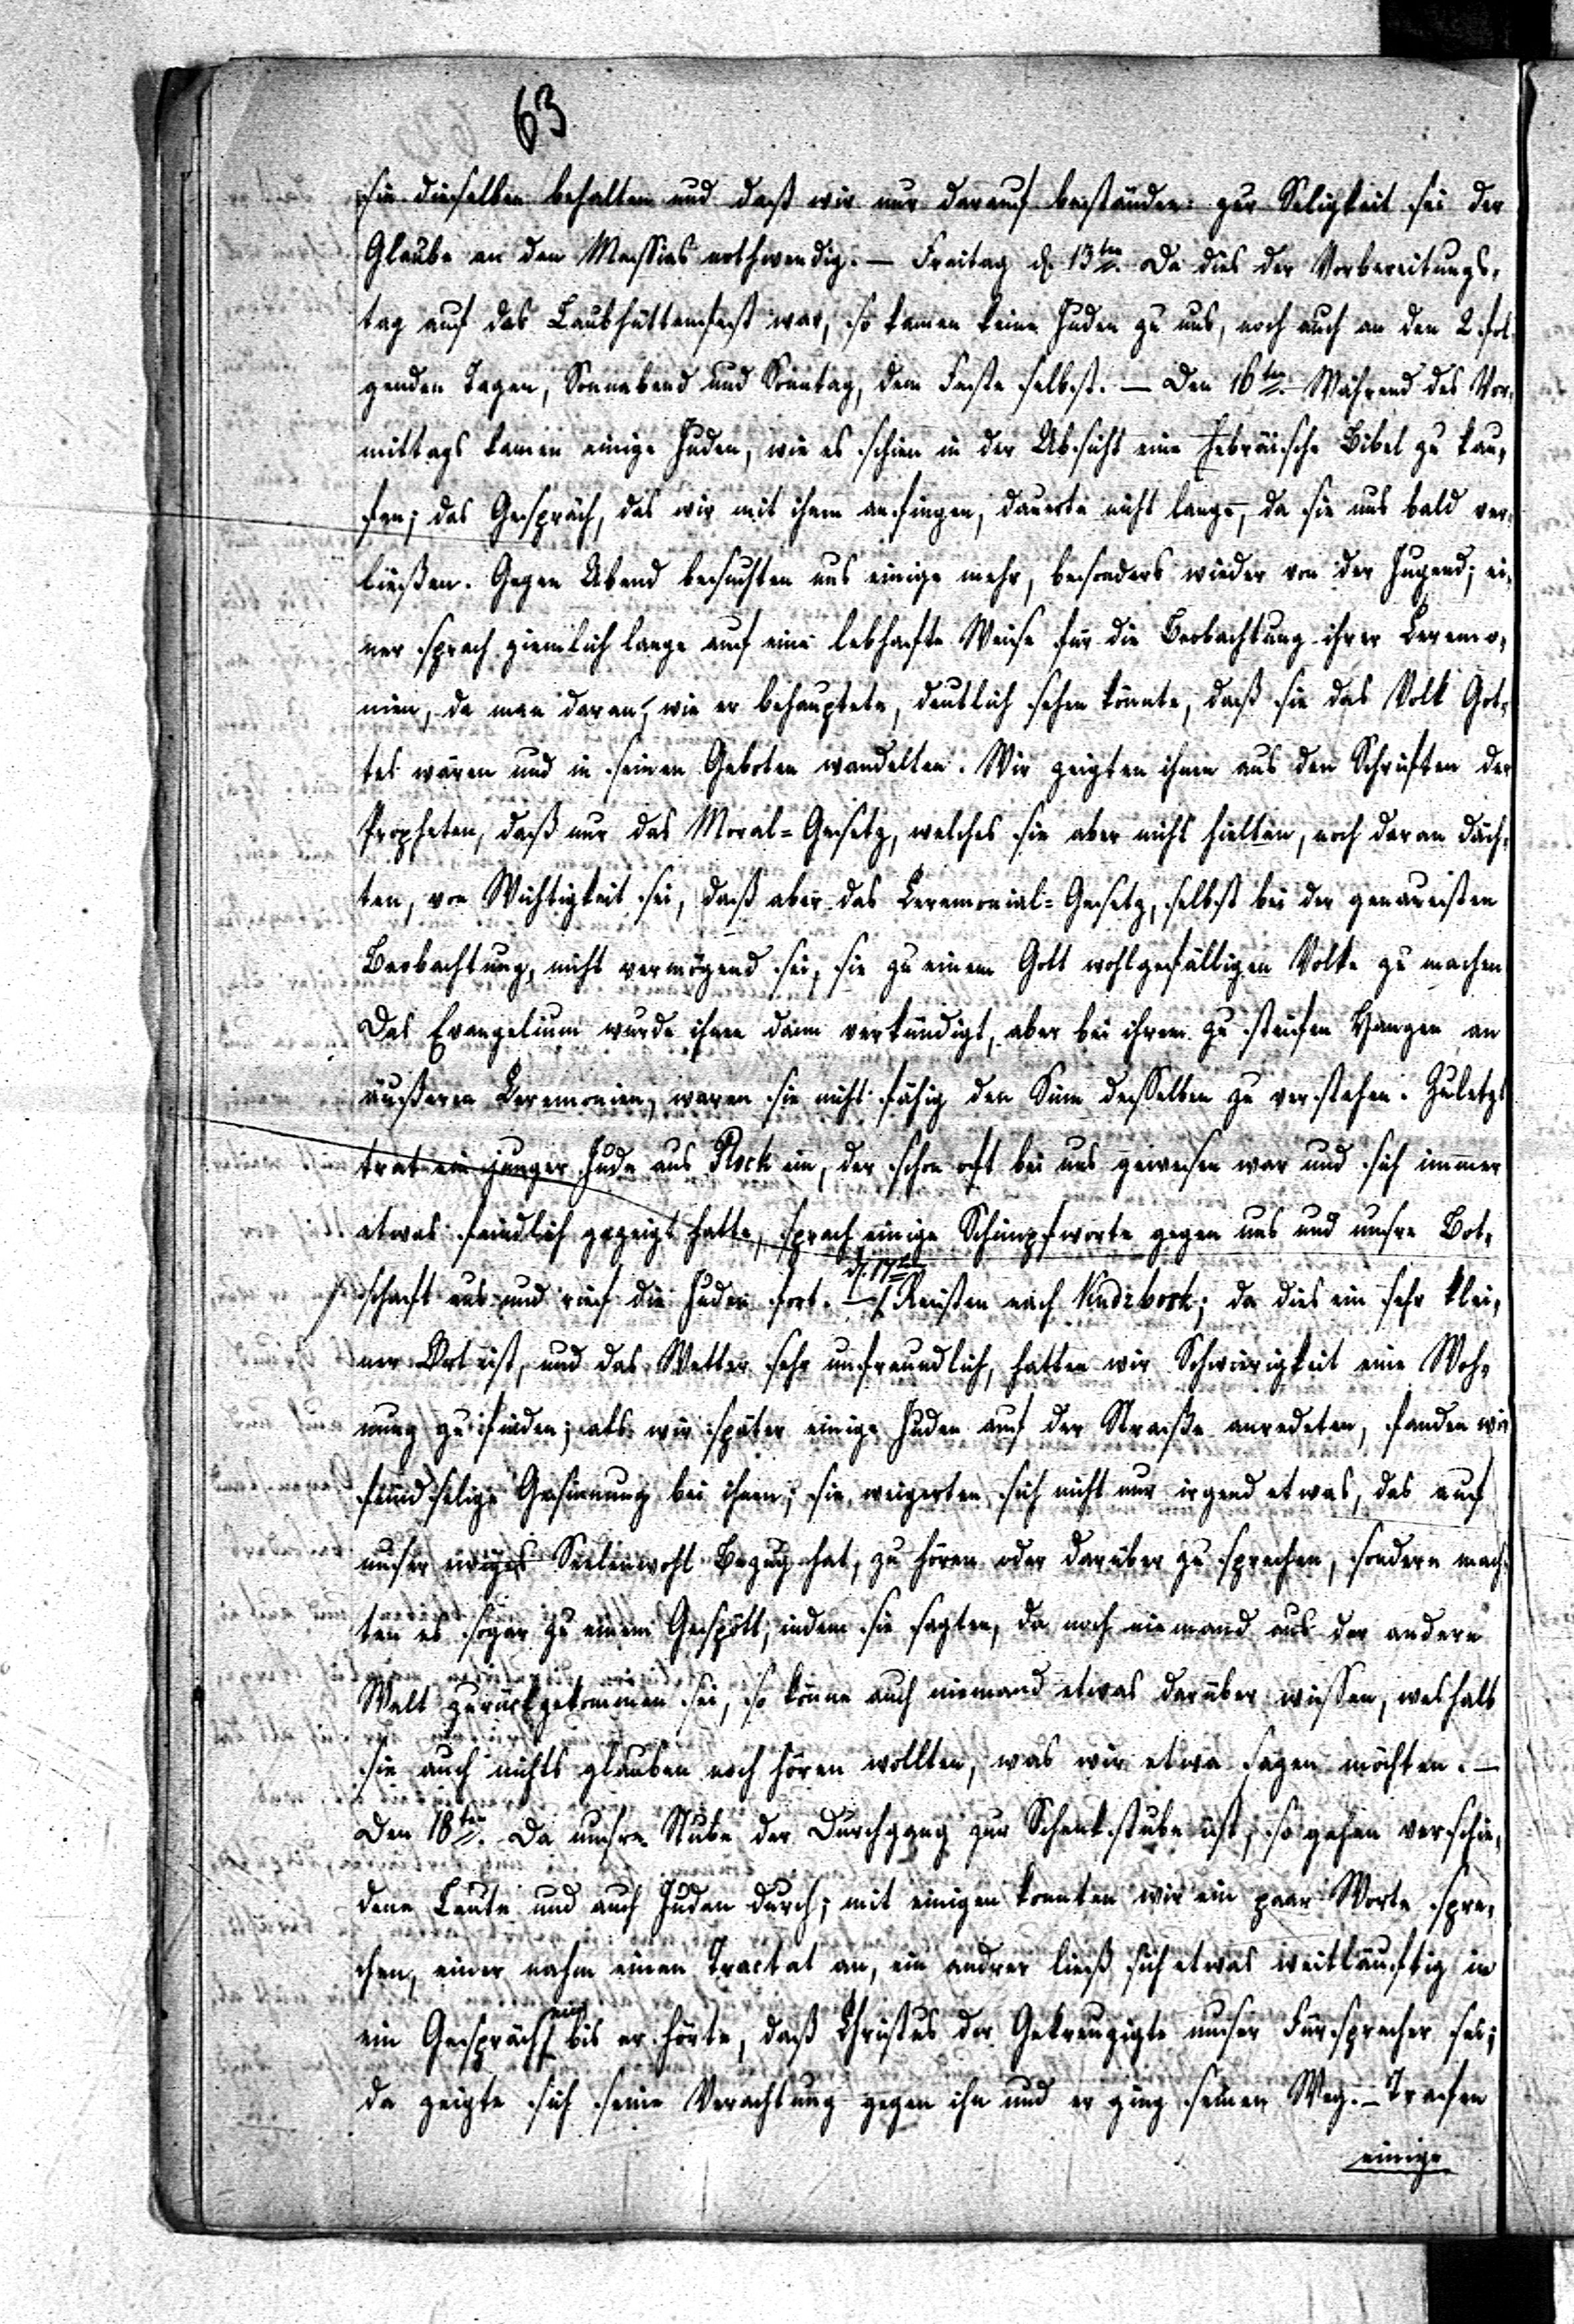 63
sie dieselben behalten und daß wir nur darauf beständen: zur Seligkeit sei der
Glaube an den Messias nothwendig. — Freitag d. 13ten. Da dies der Vorbereitungs-
tag auf das Laubhüttenfest war, so kamen keine Juden zu uns, noch auch an den 2 fol-
genden Tagen, Sonnabend und Sonntag, dem Feste selbst. — Den 16ten. Während des Vor-
mittags kamen einige Juden, wie es schien in der Absicht eine Hebräische Bibel zu kau-
fen; das Gespräch, das wir mit ihnen anfingen, dauerte nicht lange, da sie uns bald ver-
ließen. Gegen Abend besuchten uns einige mehr, besonders wieder von der Jugend; ei-
ner sprach ziemlich lange auf eine lebhafte Weise für die Beobachtung ihrer Ceremo-
nien, da man daran, wie er behauptete, deutlich sehen könnte, daß sie das Volk Got-
tes wären und in seinen Geboten wandelten. Wir zeigten ihnen aus den Schriften der
Propheten, daß nur das Moral=Gesetz, welches sie aber nicht hielten, noch daran däch-
ten, von Wichtigkeit sei, daß aber das Ceremonial=Gesetz, selbst bei der genauesten
Beobachtung, nicht vermögend sei, sie zu einem Gott wohlgefälligen Volke zu machen
Das Evangelium wurde ihnen dann verkündigt, aber bei ihrem zu steifen Hangen an
äußeren Ceremonien, waren sie nicht fähig den Sinn desselben zu verstehen. Zuletzt
trat ein junger Jude aus Plock ein, der schon oft bei uns gewesen war und sich immer
etwas feindlich gezeigt hatte, sprach einige Schimpfworte gegen uns und unsre Bot-
schaft aus und rief die Juden fort. — d. 17ten Reisten nach Kudzbork; da dies ein sehr klei-
ner Ort ist, und das Wetter sehr unfreundlich, hatten wir Schwierigkeit eine Woh-
nung zu finden; als wir später einige Juden auf der Straße anredeten, fanden wir
feindselige Gesinnung bei ihnen; sie weigerten sich nicht nur irgend etwas, das auf
unser ewiges Seelenwohl Bezug hat, zu hören oder darüber zu sprechen, sondern mach-
ten es sogar zu einem Gespött, indem sie sagten, da noch niemand aus der andern
Welt zurückgekommen sei, so könne auch niemand etwas darüber wissen, weshalb
sie auch nichts glauben noch hören wollten, was wir etwa sagen möchten. —
Den 18ten. Da unsre Stube der Durchgang zur Schenkstube ist, so gehen verschie-
dene Leute und auch Juden durch; mit einigen konnten wir ein paar Worte spre-
chen, einer nahm einen Tractat an, ein andrer ließ sich etwas weitläuftig in
ein Gespräch ein bis er hörte, daß Christus der Gekreuzigte unser Fürsprecher sei;
da zeigte sich seine Verachtung gegen ihn und er ging seinen Weg. — Trafen
einige